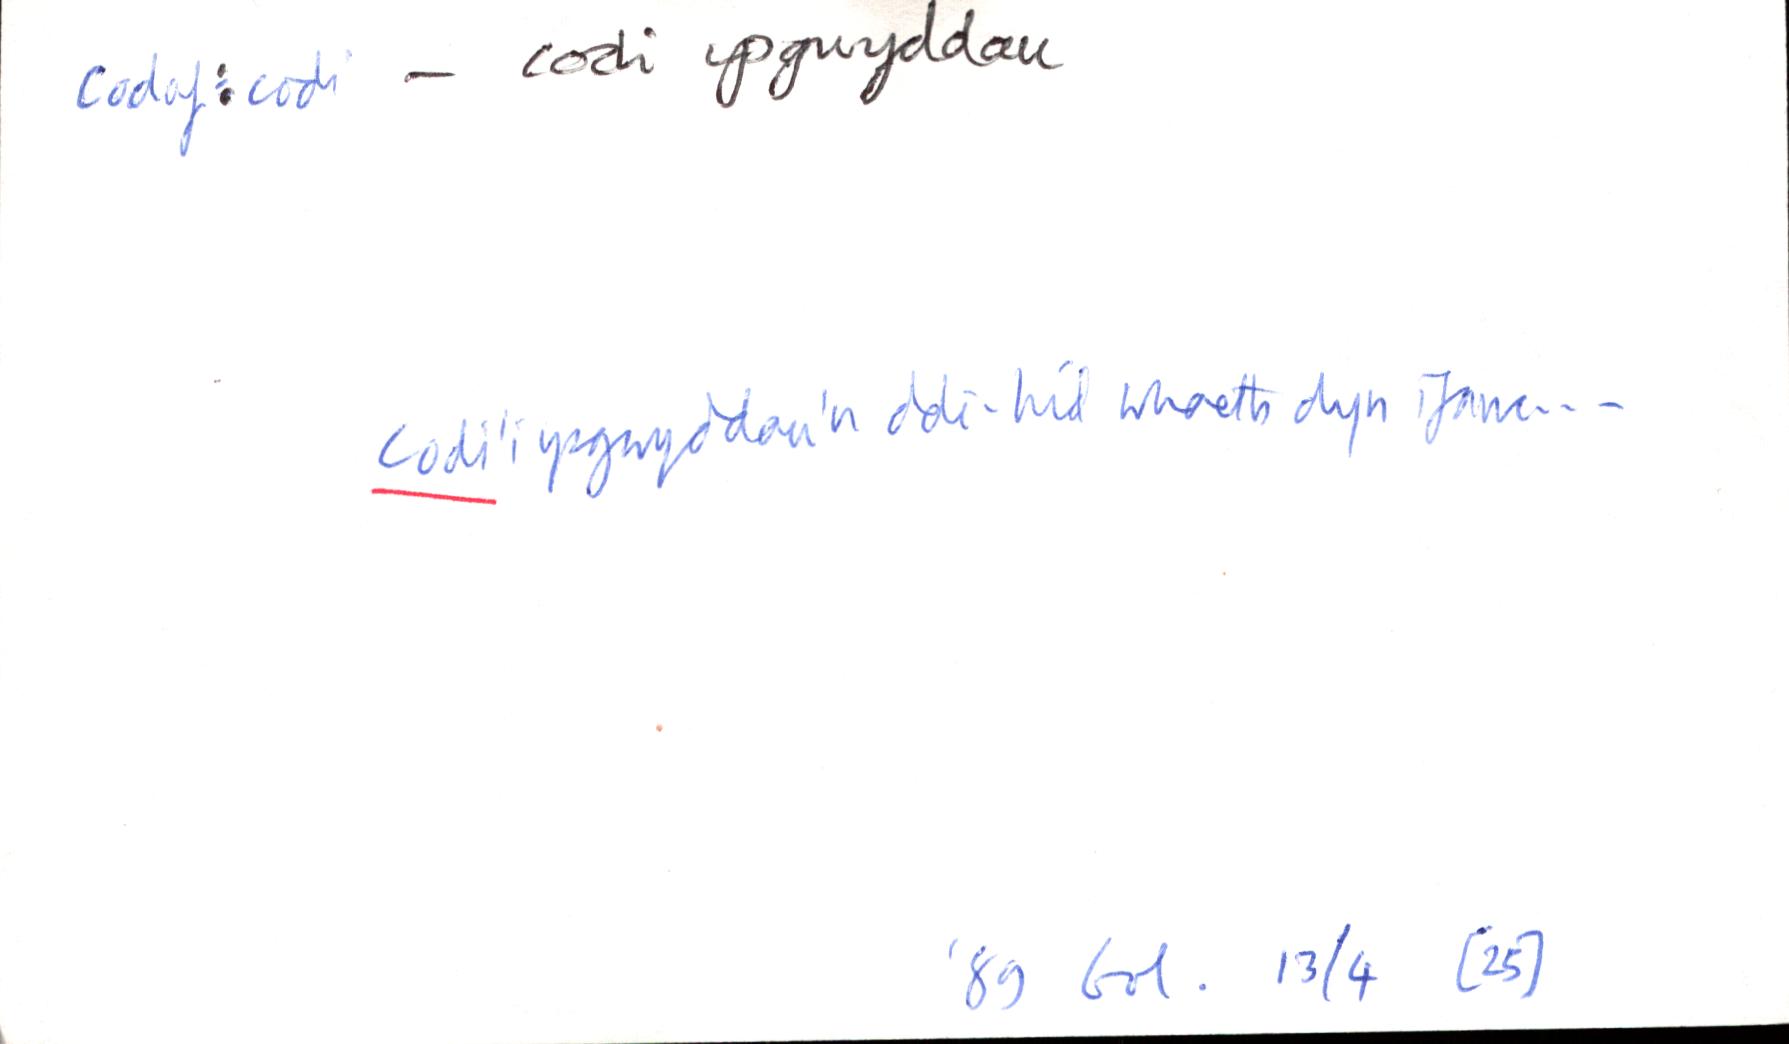 codaf: codi — codi ysgwyddau
Codi'i ysgwyddau'n ddi-hid wnaeth dyn ifanc...
'89 Gol. 13/4 [25]